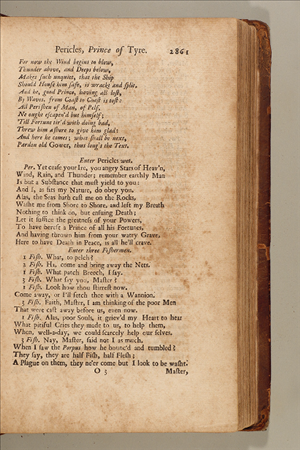 Pericles, Prince of Tyre. 2861
For now the Wind begins to blow,
Thunder above, and Deeps below,
Makes such unquiet, that the Ship
Should House him safe, is wrackt and split.
And he, good Prince, having all lost,
By Waves, from Coast to Coast is tost:
All Perishen of Man, of Pelf,
Ne ought escape'd but himself;
Till Fortune tir'd with doing bad,
Threw him ashore to give him glad:
And here he comes; what shall be next,
Pardon old Gower, thus long's the Text.
Enter Pericles wet.
Per. Yet cease your Ire, you angry Stars of Heav'n,
Wind, Rain, and Thunder; remember earthly Man
Is but a Substance that must yield to you:
And I, as fits my Nature, do obey you.
Alas, the Seas hath cast me on the Rocks,
Washt me from Shore to Shore, and left my Breath
Nothing to think on, but ensuing Death;
Let it suffice the greatness of your Powers,
To have bereft a Prince of all his Fortunes,
And having thrown him from your watry Grave,
Here to have Death in Peace, is all he'll crave.
Enter three Fishermen.
1 Fish. What, to pelch?
2 Fish. Ha, come and bring away the Nets.
1 Fish. What patch Breech, I say.
3 Fish. What say you, Master?
1 Fish. Look how thou stirrest now.
Come away, or I'll fetch thee with a Wannion.
3 Fish. Faith, Master, I am thinking of the poor Men
That were cast away before us, even now.
1 Fish. Alas, poor Souls, it griev'd my Heart to hear
What pitiful Cries they made to us, to help them,
When, well-a-day, we could scarcely help our selves.
3 Fish. Nay, Master, said not I as much.
When I saw the Porpus how he bounc'd and tumbled?
They say, they are half Fish, half Flesh;
A Plague on them, they ne'er come but I look to be washt.
O 3 Master,